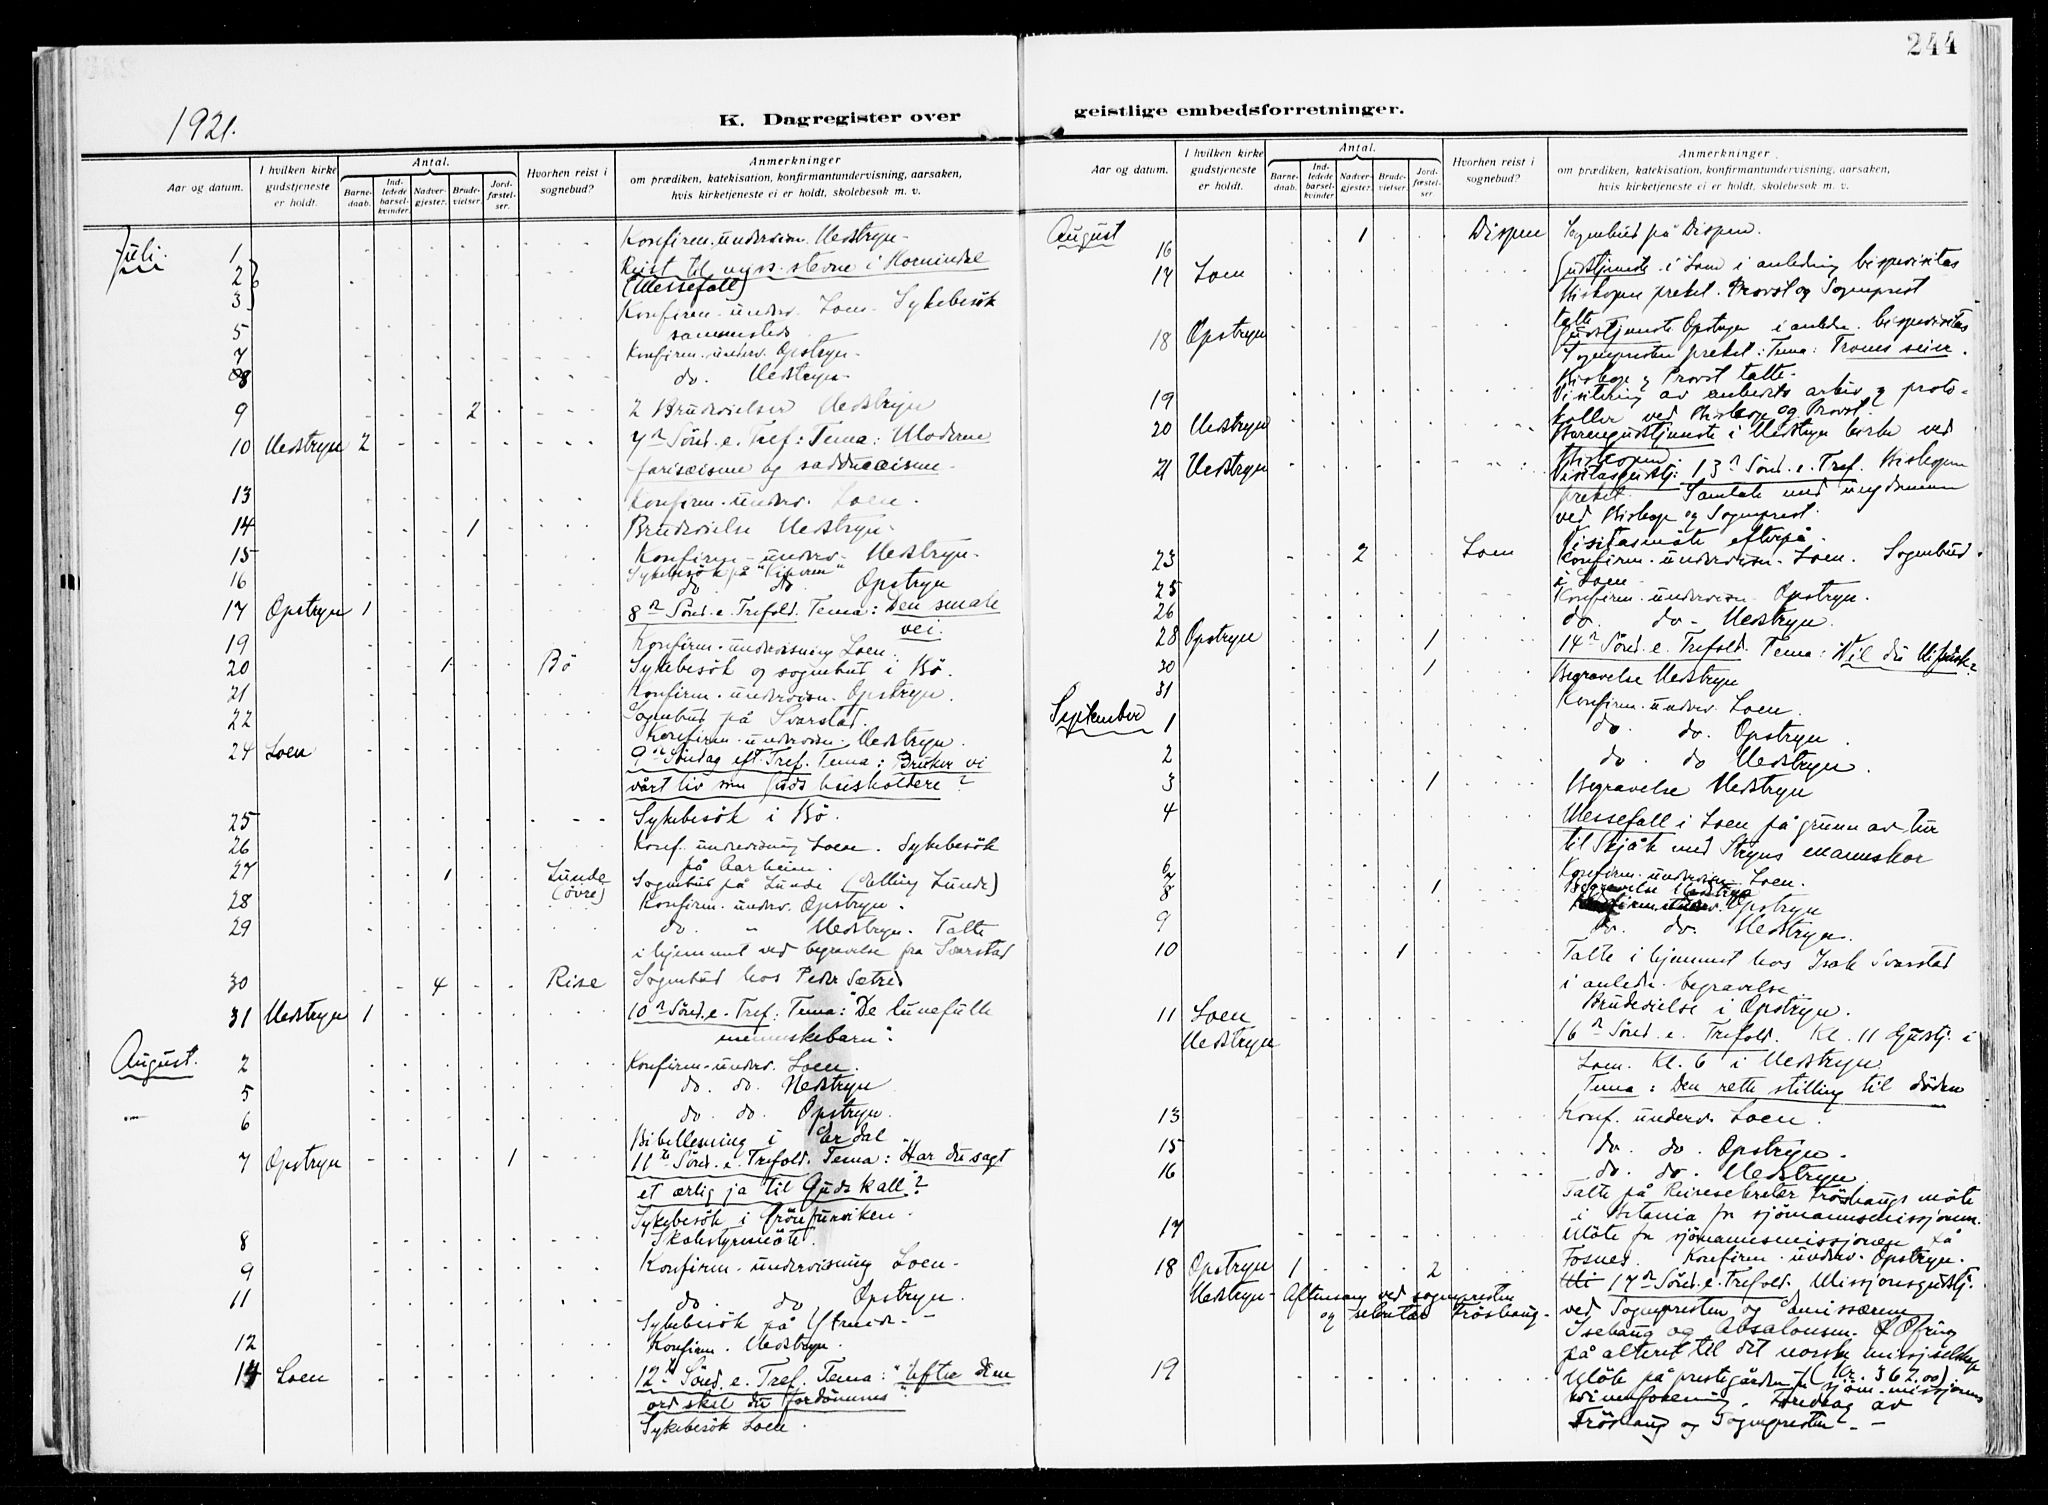 244
1921.
K. Dagregister over
geistlige embedsforretninger.
Aar og datum.
I hvilken kirke gudstjeneste er holdt.
Antal.
Barne-daab.
Ind-ledede barsel-kvinder.
Nadver-gjester.
Brude-vielser.
Jord-fæstel-ser.
Hvorhen reist i sognebud?
Anmerkninger
om prædiken, katekisation, konfirmantundervisning, aarsaken,
hvis kirketjeneste ei er holdt, skolebesøk m. v.
Juli. 1 Konfirm. undervisn. Nedstryn.
2 Reist til miss. stevne i Hornindal
3 (Messefall)
5 Konfirm. underv. Loen. Sykebesök
sammesteds
7 Konfirm. underv. Opstryn.
8 do. Nedstryn.
9 2 2 Brudevielser Nedstryn
10 Nedstryn 2 7de Sönd. e. Tref: Tema: Moderne
fariseisme og sadduceisme.
13 Konfirm. underv. Loen.
14 1 Brudevielse Nedstryn.
15 Konfirm. underv. Nedstryn.
Sykebesök på
16 do do Opstryn
17 Opstryn 1 8de Sönd. e. Trefold. Tema: Den smale
vei.
19 Konfirm. undervisning Loen.
20 1 Bö Sykebesök og sognebud i Bö.
21 Konfirm. undervisn. Opstryn.
22 Sognebud på Svarstad.
Konfirm. undervisn. Nedstryn.
24 Loen 9de Söndag eft. Tref. Tema: Bruker vi
vårt liv som Guds husholdere?
25 Sykebesök i Bö.
26 Konf. undervisning Loen. Sykebesök
på Aarheim.
27 1 Lunde (övre) Sognebud på Lunde (Lunde)
28 Konfirm. underv. Opstryn.
29 do. " Nedstryn. Talte
i hjemmet ved begravelse fra Svarstad
30 4 Rise Sognebud hos Peder Sætred
31 Nedstryn 1 10de Sönd. e. Tref: Tema: "De lunefulle
menneskebarn".
August. 2 Konfirm. underv. Loen.
5 do. do. Nedstryn
6 do do. Opstryn.
Bibellesning i Erdal
7 Opstryn 1 11te Sönd. e. Trefold. Tema: Har du sagt
et ærlig ja til Guds kall?
Sykebesök i
8 Skolestyremöte.
9 Konfirm. undervisning Loen.
11 do. do Opstryn.
Sykebesök på
12 Konfirm. Nedstryn.
14 Loen 12te Sönd. e. Tref. Tema: "Efter dine
ord skal du fordömmes"
Sykebesök Loen.
Aar og datum.
I hvilken kirke gudstjeneste er holdt.
Antal.
Barne-daab.
Ind-ledede barsel-kvinder
Nadver-gjester.
Brude-vielser.
Jord-fæstel-ser.
Hvorhen reist i sognebud?
Anmerkninger
om prædiken, katekisation, konfirmantundervisning, aarsaken,
hvis kirketjeneste ei er holdt, skolebesøk m. v.
August 16 1 Dispen Sognebud på Dispen.
17 Loen Gudstjeneste i Loen i anledning bispevisitas
Biskopen preket. Provst og Sogneprest
talte
18 Opstryn Gudstjeneste Opstryn i anledn. bispevisitas
Sognepresten preket: Tema: Troens seier.
Biskop & Provst talte.
19 Visitering av embeds arkiv & proto-
koller ved Biskop og Provst.
20 Nedstryn Barnegudstjeneste i Nedstryn kirke ved
Biskopen.
21 Nedstryn Visitasgudstj: 13de Sönd. e. Tref. Biskopen
preket. Samtale med ungdommen
ved Biskop og Sogneprest.
Visitasmöte efterpå.
23 2 Loen Konfirm. undervisn. Loen. Sognebud
i Loen.
25 Konfirm. undervisn. Opstryn.
26 do. do. Nedstryn.
28 Opstryn 1 14de Sönd. e. Trefold. Tema: Vil du
30 1 Begravelse Nedstryn
31 Konfirm. underv. Loen.
September 1 do. do. Opstryn.
2 do. do Nedstryn.
3 1 Begravelse Nedstryn
4 Messefall i Loen på grunn av tur
til Skjåk med Stryns mannskor
6 Konfirm. undervisn. Loen.
7 1 Begravelse Nedstryn
8 Konfirm. underv. Opstryn
9 do. do. Nedstryn.
10 1 Talte i hjemmet hos Isak Svarstad
i anledn. begravelse
Brudevielse i Opstryn.
11 Loen 16de Sönd. e. Trefold. Kl. 11 Gudstj. i
Nedstryn Loen. Kl. 6 i Nedstryn
Tema: Den rette stilling til döden
13 Konf. underv. Loen.
15 do. do. Opstryn.
16 do. do. Nedstryn
Talte på Reisesekretær Fröshaugs möte
i Betania for sjömannsmissjonen.
17 Möte for sjömannsmissjonen på
Fosnes. Konfirm. underv. Opstryn.
18 Opstryn 1 2 17de Sönd. e. Trefold. Missjonsgudstj.
Nedstryn - Aftensang ved sognepresten
og sekretær Fröshaug.
ved Sognepresten og emissærene
Isehaug og Absalonsen. Ofring
på alteret til det norske missj.selskap
(Kr. 362.00)
19 Möte på prestegården for sjöm. missjonens
kvinneforening. Foredrag av
Fröshaug og Sognepresten